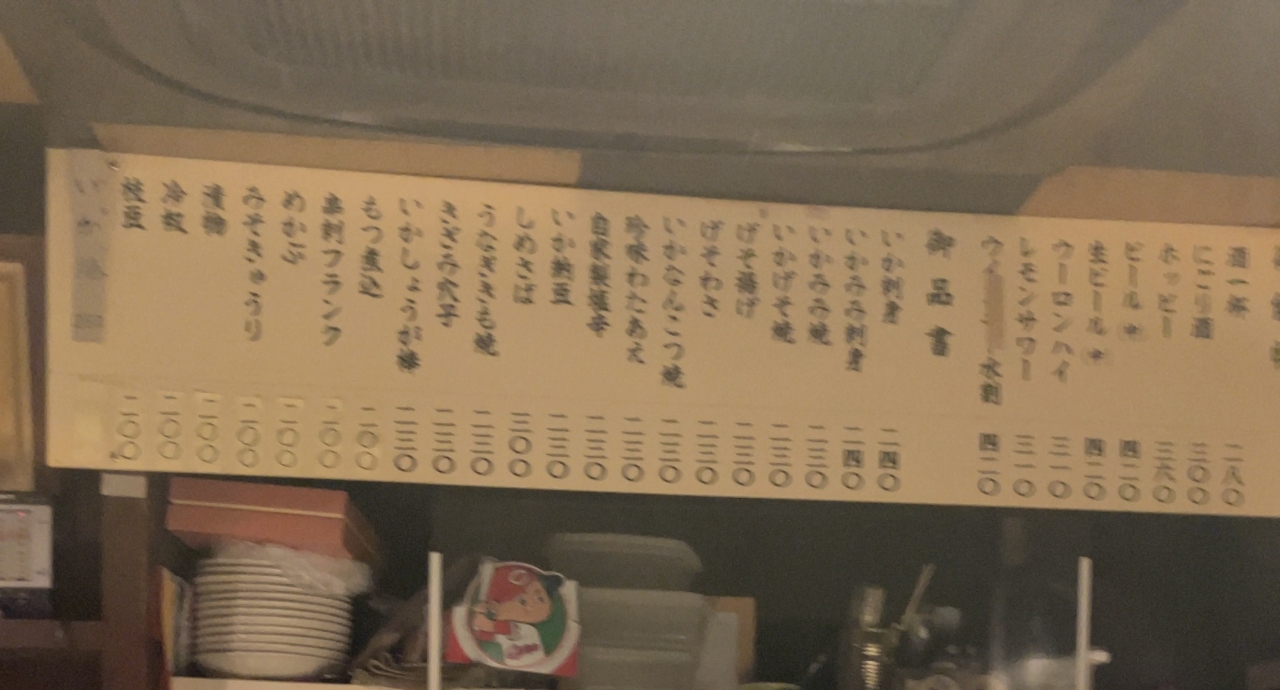 酒一杯 一八〇
にごり酒 三〇〇
ホッピー 三六〇
ビール 中 四二〇
生ビール 中 四二〇
ウーロンハイ 三一〇
レモンサワー 三一〇
水割 四二〇
御品書
いか刺身 二四〇
いかみみ刺身 二四〇
いかみみ焼 二三〇
いかげそ焼 二三〇
げそ揚げ 二三〇
げそわさ 二三〇
いかなんこつ焼 二三〇
珍味わたあえ 二三〇
自家製塩辛 二三〇
いか納豆 二三〇
しめさば 三〇〇
うなぎきも焼 二三〇
きざみ穴子 二三〇
いかしょうが棒 二三〇
もつ煮込 二〇〇
串刺フランク 二〇〇
めかぶ 二〇〇
みそきゅうり 二〇〇
漬物 二〇〇
冷奴 二〇〇
枝豆 二〇〇